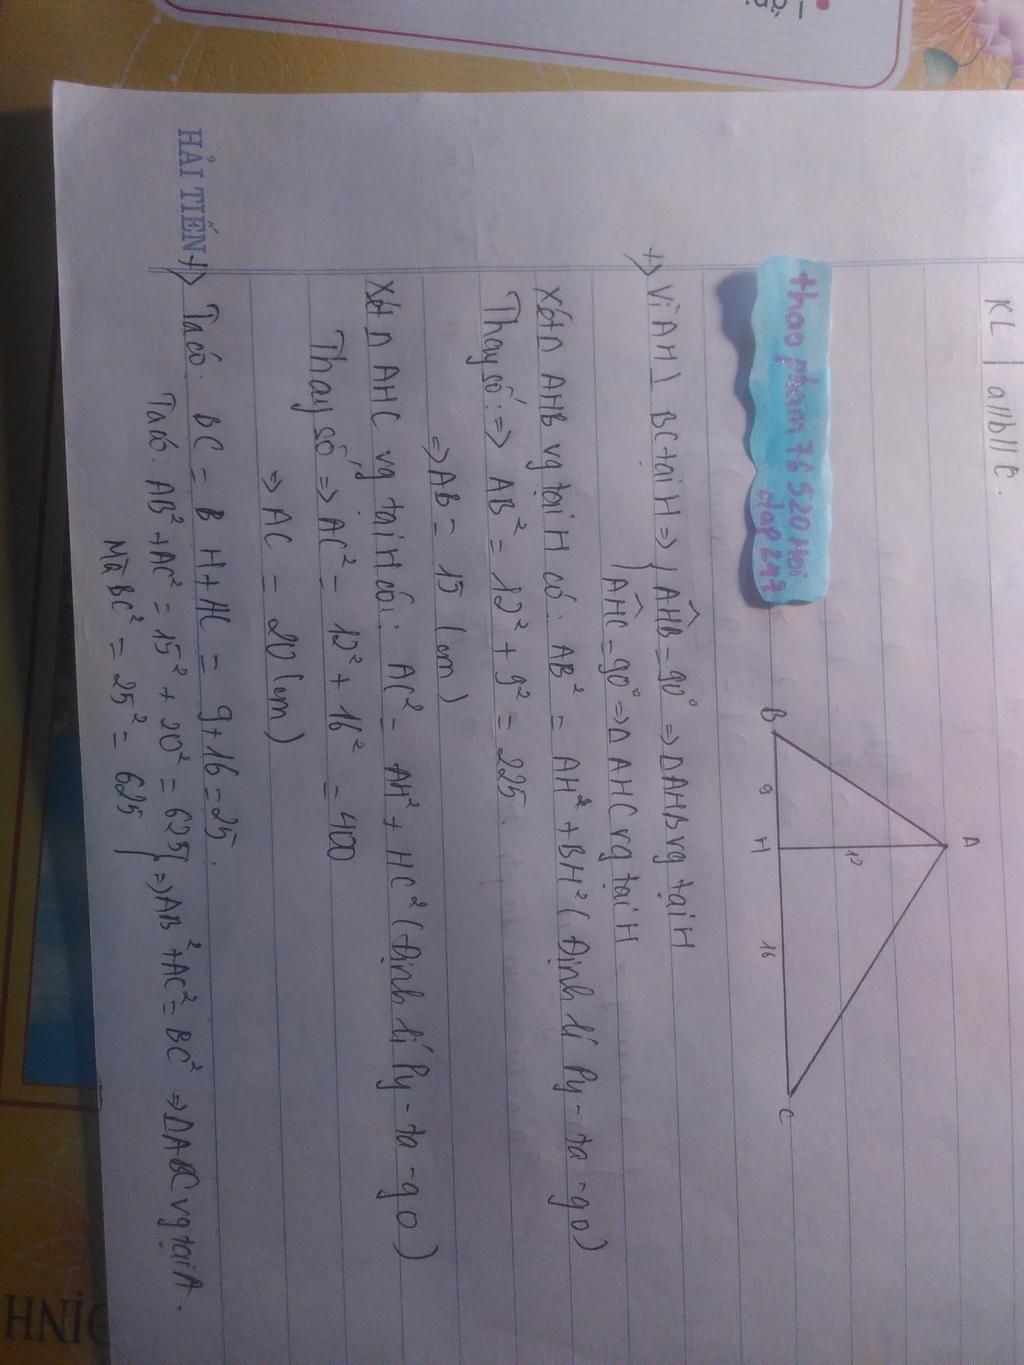 KL | a//b//c.
thao pham 76 520 Hoi
dap 247
A
12
B 9 H 16 C
+) Vì AH ⊥ BC tại H => { AHB̂ = 90° => Δ AHB vg tại H
AHĈ = 90° => Δ AHC vg tại H
Xét Δ AHB vg tại H có: AB² = AH² + BH² (Định lí Py-ta-go)
Thay số: => AB² = 12² + 9² = 225.
=> AB = 15 (cm)
Xét Δ AHC vg tại H có: AC² = AH² + HC² (Định lí Py-ta-go)
Thay số => AC² = 12² + 16² = 400
=> AC = 20 (cm)
HẢI TIẾN
+) Ta có: BC = BH + HC = 9 + 16 = 25.
Ta có: AB² + AC² = 15² + 20² = 625 } => AB² + AC² = BC² => Δ ABC vg tại A.
Mà BC² = 25² = 625